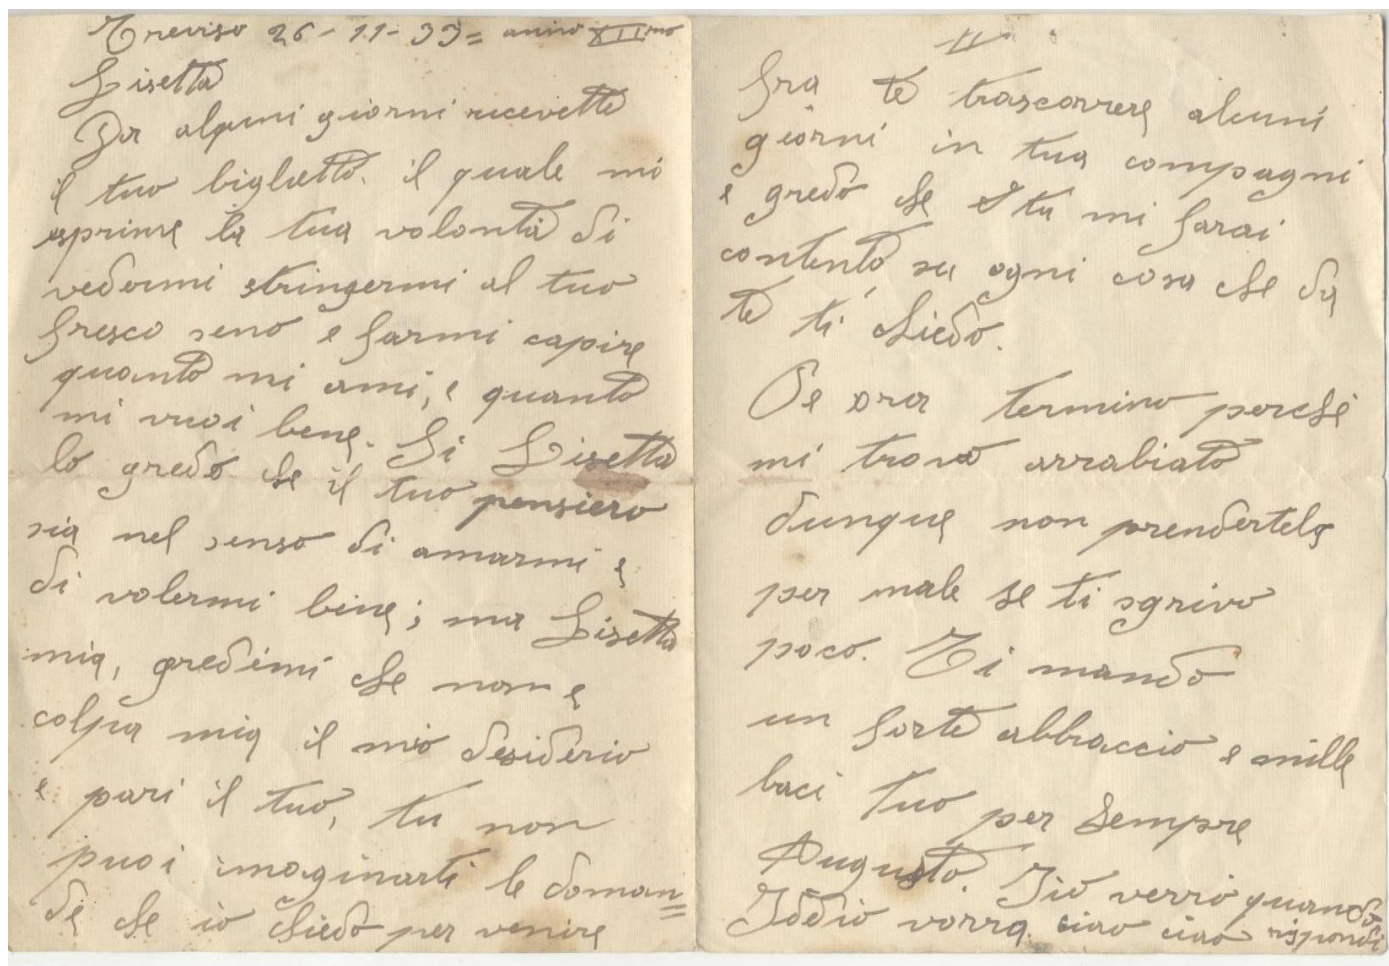 Treviso 26-11-33= anno XIImo
Lisetta
Da alquni giorni ricevetti
il tuo biglietto. il quale mi
esprime la tua volontà di
vedermi stringermi al tuo
fresco seno e farmi capire
quanto mi ami, e quanto
mi vuoi bene. Si Lisetta
lo gredo che il tuo pensiero
sia nel senso di amarmi e
di volermi bene; ma Lisetta
mia, gredimi che non e
colpa mia il mio desiderio
e pari il tuo, tu non
puoi imaginarti le doman=
de che io chiedo per venire
II
fra te trascorrere alcuni
giorni in tua compagni
e gredo che tu mi farai
contento su ogni cosa che da
te ti chiedo.
Se ora termino perche
mi trovo arrabiato
dunque non prendertela
per male se ti sgrivo
poco. Ti mando
un forte abbraccio e mille
baci tuo per sempre
Augusto. Jio verrò quando
Iddio vorra. ciao ciao rispondi